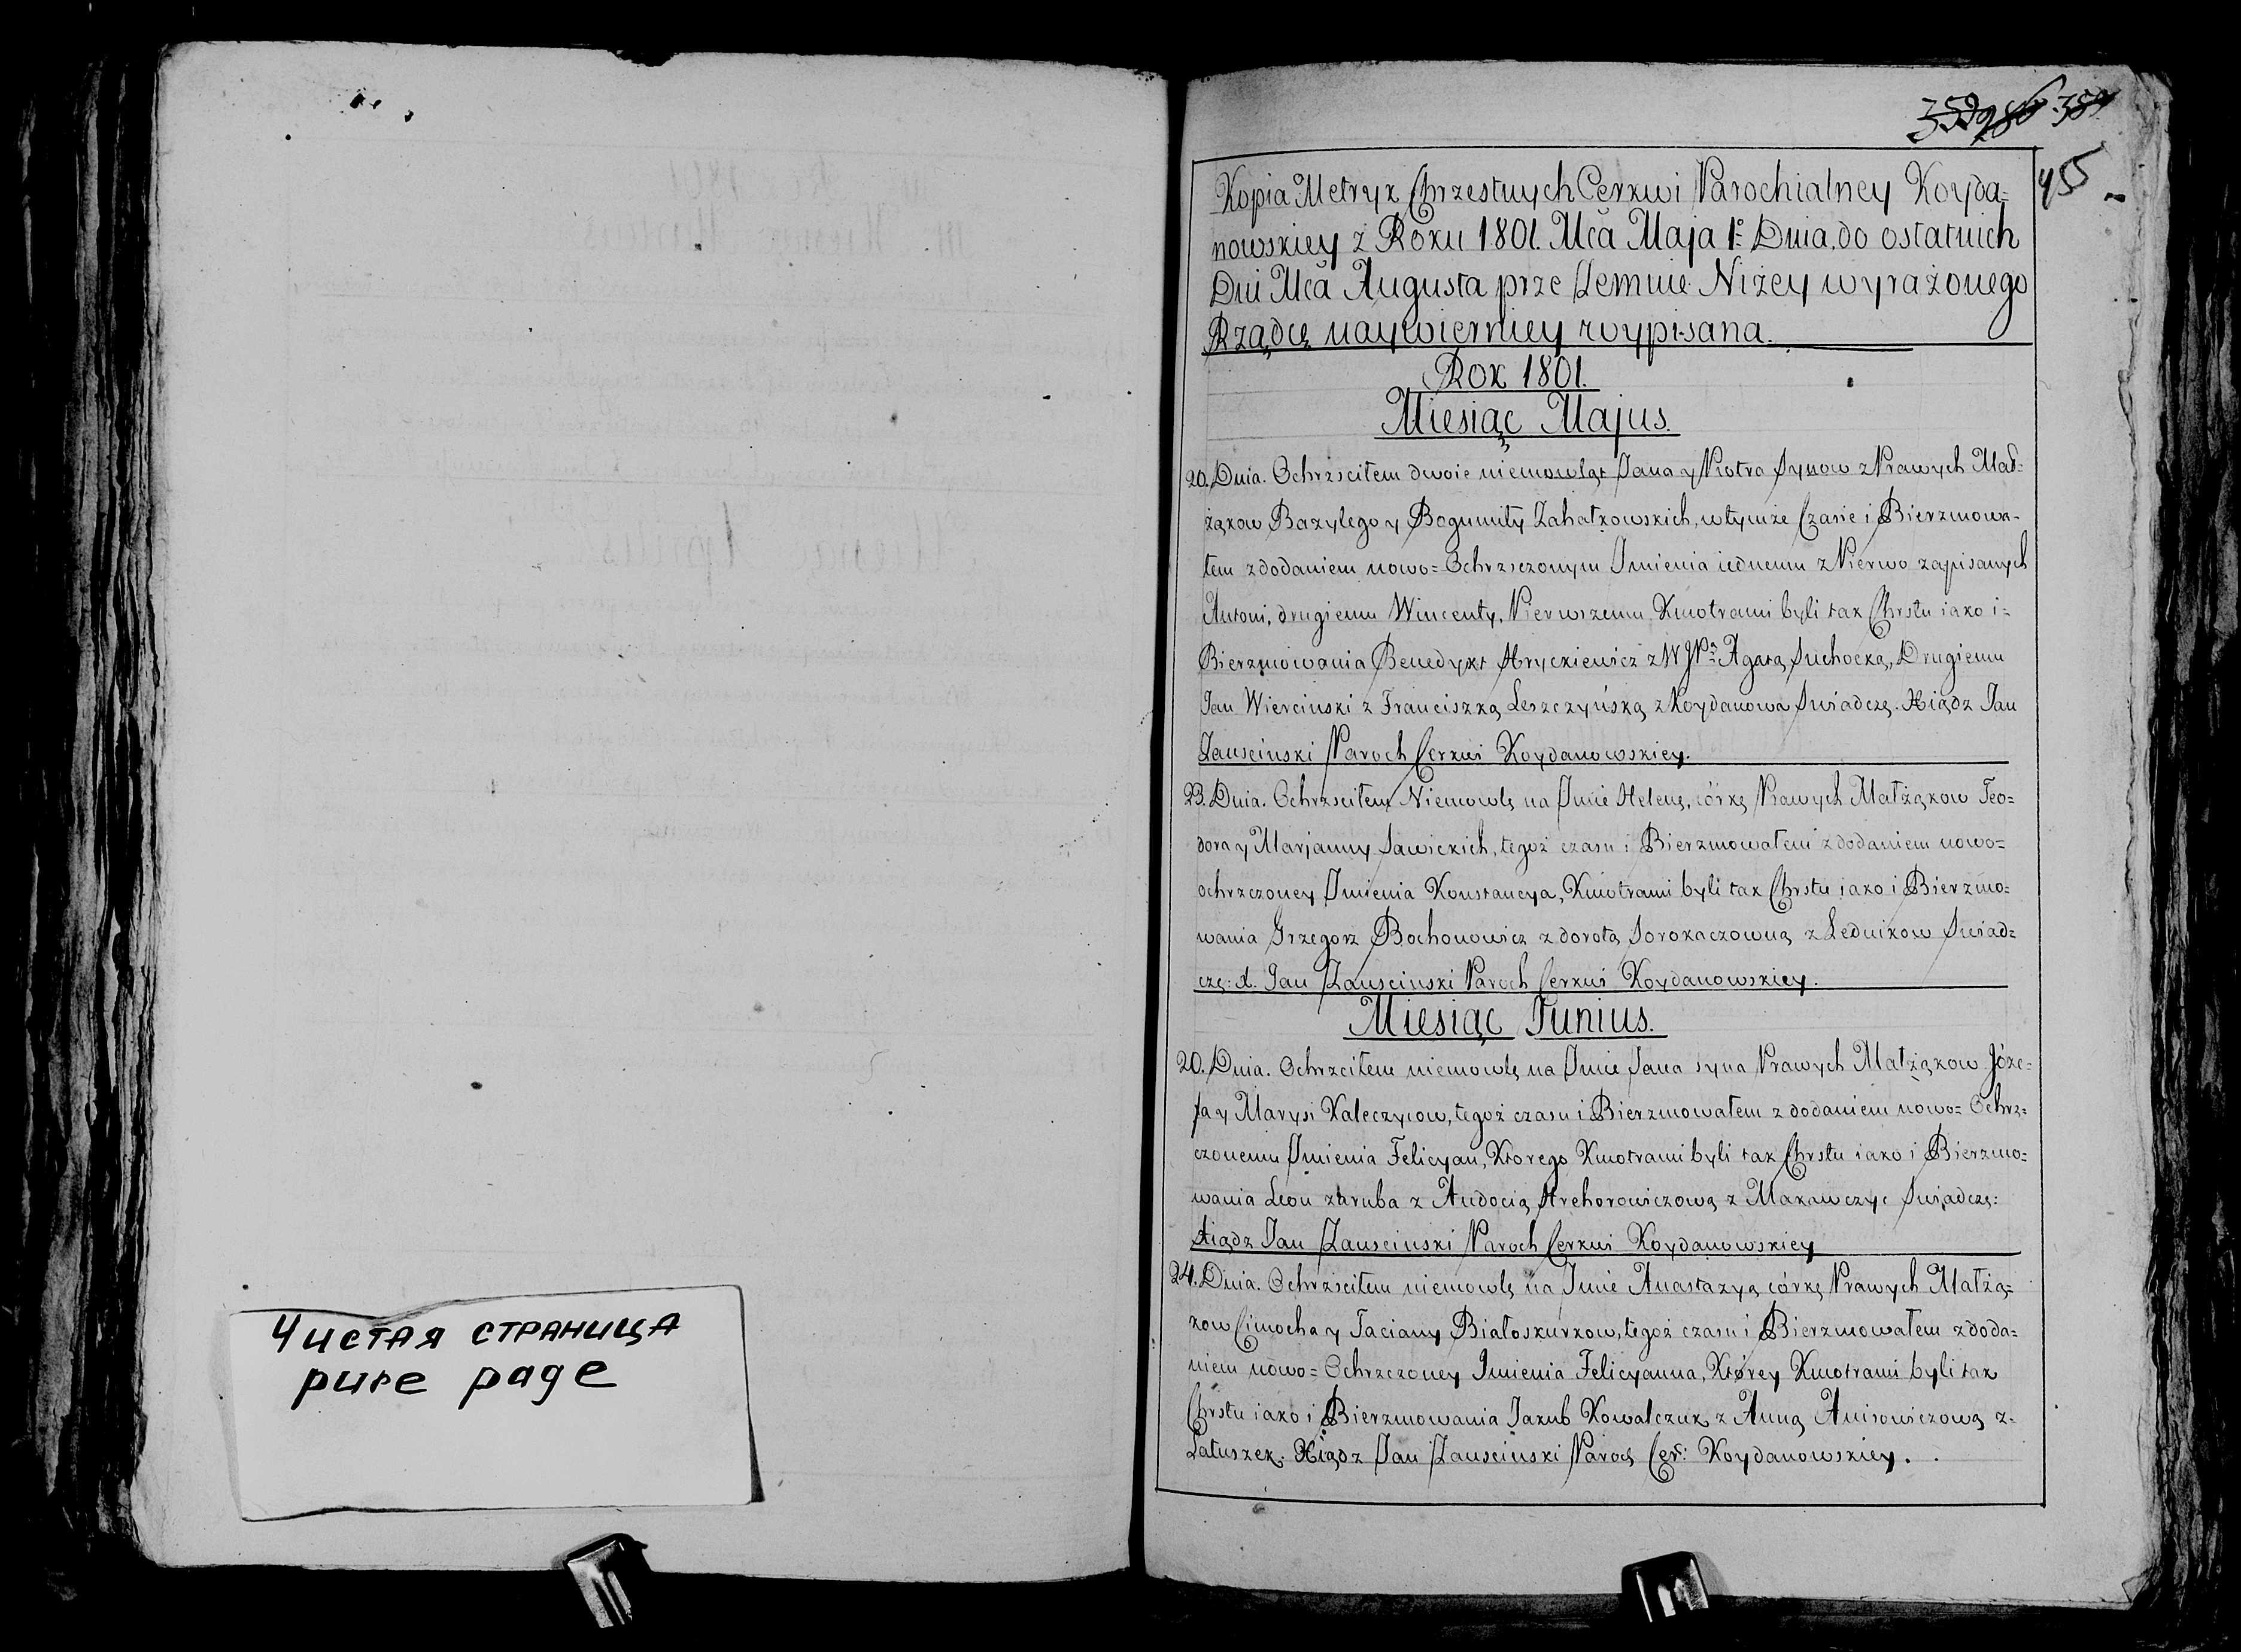 Чистая страница
pure page
45
Kopia Metryk Chrzestnych Cerkwi Parochialney Koyda=
nowskiey z Roku 1801. Mca Maja 1º Dnia, do ostatnich
Dni Mca Augusta prze ze mnie Niżey wyrażonego
Rządcę naywierniey wypisana.
Rok 1801.
Miesiąc Majus.
20. Dnia. Ochrzsciłem dwoie niemowląt Jana y Piotra Synow z Prawych Mał=
żąkow Bazylego y Bogumiły Zahałkowskich, w tymże Czasie i Bierzmowa-
łem z dodaniem nowo=Ochrzszczonym Jmienia iednemu z Pierwo zapisanych
Antoni, drugiemu Wincenty. Pierwszemu Kmotrami byli tak Chrstu iako i=
Bierzmowania Benedykt Hryckiewicz z W JPą Agatą Suchocką, Drugiemu
Jan Wiercinski z Franciszką Leszczyńską z Koydanowa Swiadczę. Xiądz Jan
Zauscinski Paroch Cerkwi Koydanowskiey.
23. Dnia. Ochrzsciłem Niemowlę na Jmie Helenę, córkę Prawych Małżąkow Teo=
dora y Marjanny Sawickich, tegoż czasu i Bierzmowałem z dodaniem nowo=
ochrzczoney Jmienia Konstancya, Kmotrami byli tak Chrstu iako i Bierzmo=
wania Grzegorz Bochonowicz z dorotą Sorokaczowną z Lednikow Swiad=
czę: X. Jan Zauscinski Paroch Cerkwi Koydanowskiey.
Miesiąc Junius.
20. Dnia. Ochrzciłem niemowlę na Jmie Jana syna Prawych Małżąkow Józe=
fa y Marysi Kaleczycow, tegoż czasu i Bierzmowałem z dodaniem nowo=Ochrz=
czonemu Jmienia Felicyan, Ktorego Kmotrami byli tak Chrstu iako i Bierzmo=
wania Leon zaruba z Audocią Hrehorowiczową z Makawczyc Swiadczę:
Xiądz Jan Zauscinski Paroch Cerkwi Koydanowskiey
24. Dnia. Ochrzsciłem niemowlę na Jmie Anastazyą córkę Prawych Małżą=
kow Cimocha y Taciany Białoskurkow, tegoż czasu i Bierzmowałem z doda=
niem nowo=Ochrzczoney Jmienia Felicyanna, Którey Kmotrami byli tak
Chrstu iako i Bierzmowania Jakub Kowalczuk z Anną Anisowiczową z=
Łatuszek. Xiądz Jan Zauscinski Paroch Cer: Koydanowskiey.